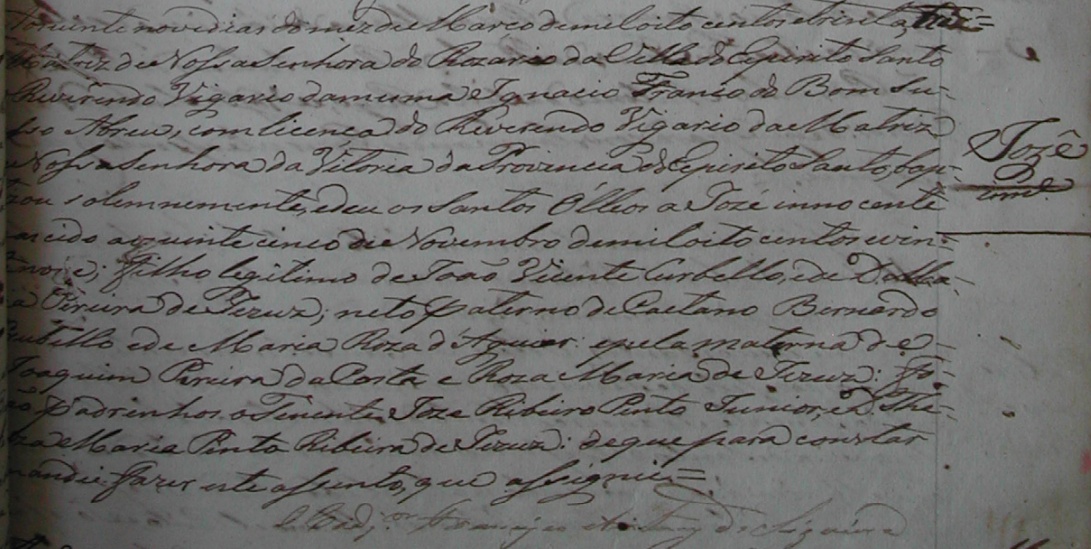 vinte nove dias do mez de Março de mil oito centos e trinta,
Matriz de Nossa Senhora do Rozario da Villa do Espirito Santo
Reverendo Vigario da mesma Ignacio Franco do Bom Su-
so Abreu, com licença do Reverendo Vigario da Matriz
Nossa Senhora da Vitoria da Provincia do Espirito Santo, bap-
zou solemnemente, e deu os Santos Olleos a Joze innocente
ascido a vinte cinco de Novembro de mil oito centos e vin-
nove; filho legitimo de João Vicente Curbello, e de D. Ma-
a Pereira de Jezuz; neto paterno de Caetano Bernardo
Curbello e de Maria Roza d'Aguiar: e pela materna de
Joaquim Pereira da Costa e Roza Maria de Jezuz: fo-
ão Padrinhos o Tenente Joze Ribeiro Pinto Junior, e D. The-
za Maria Pinta Ribeira de Jezuz: de que para constar
mandei fazer este assento, que assignei=
Francisco de Siqueira
Jozê